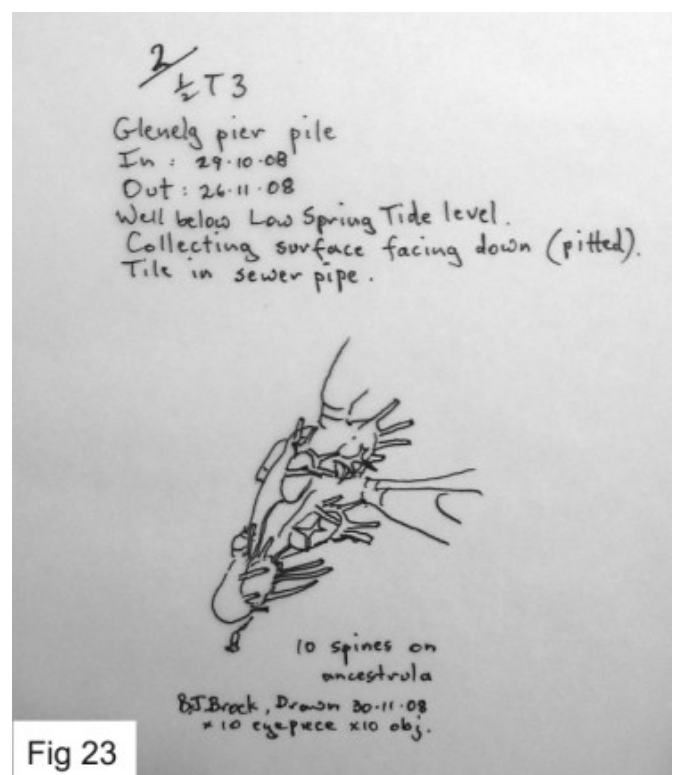 2/
½ T 3
Glenelg pier pile
In : 29·10·08
Out : 26·11·08
Well below Low Spring Tide level.
Collecting surface facing down (pitted).
Tile in sewer pipe.
10 spines on
ancestrula
B.J.Brock, Drawn 30·11·08
× 10 eyepiece ×10 obj.
Fig 23